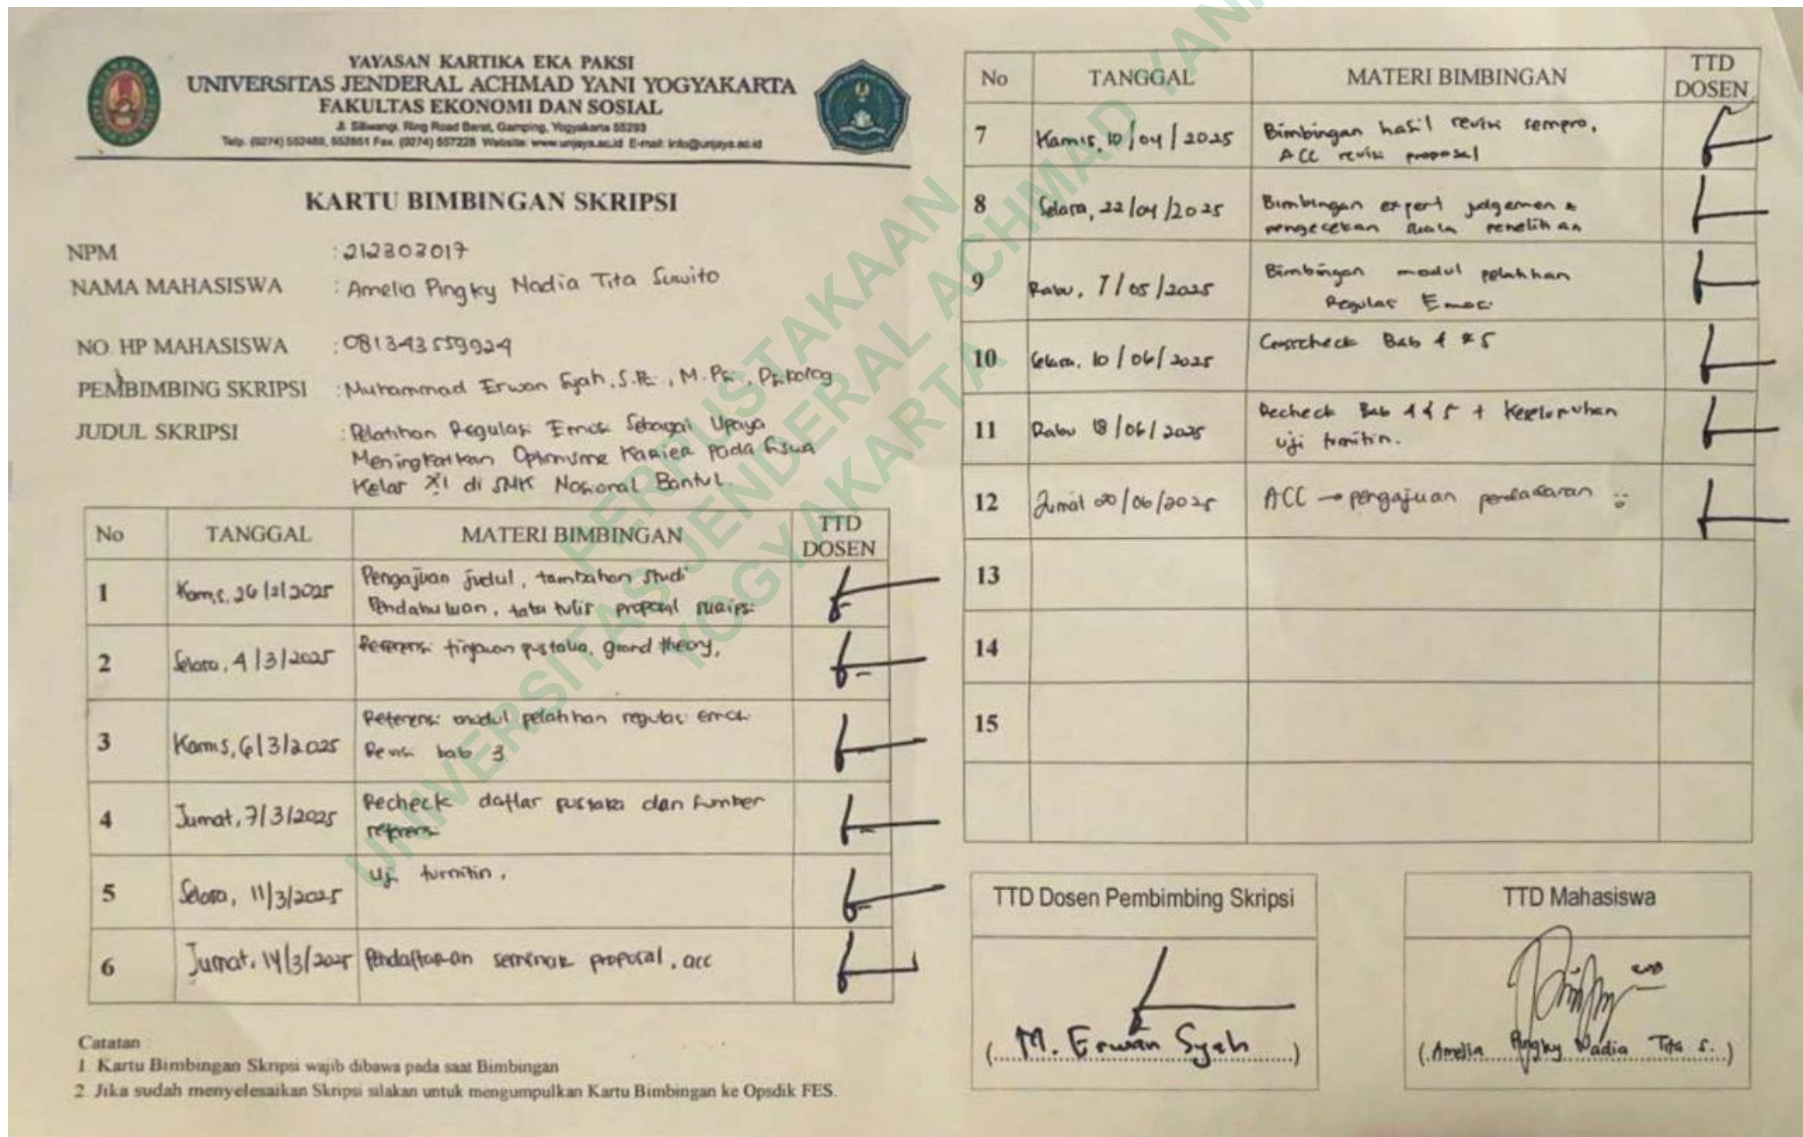 YAYASAN KARTIKA EKA PAKSI
UNIVERSITAS JENDERAL ACHMAD YANI YOGYAKARTA
FAKULTAS EKONOMI DAN SOSIAL
Jl. Siliwangi, Ring Road Barat, Gamping, Yogyakarta 55293
Telp. (0274) 552489, 552851 Fax. (0274) 557228 Website: www.unjaya.ac.id E-mail: info@unjaya.ac.id
KARTU BIMBINGAN SKRIPSI
NPM : 212303017
NAMA MAHASISWA : Amelia Pingky Nadia Tita Suwito
NO. HP MAHASISWA : 081343559924
PEMBIMBING SKRIPSI : Muhammad Erwan Syah, S.Psi., M.Psi., Psikolog
JUDUL SKRIPSI : Pelatihan Regulasi Emosi Sebagai Upaya
Meningkatkan Optimisme Karier Pada Siswa
Kelas XI di SMK Nasional Bantul.
No TANGGAL MATERI BIMBINGAN TTD DOSEN
1 Kamis, 26/2/2025 Pengajuan judul, tambahan Studi
Pendahuluan, tata tulis proposal skripsi
2 Selasa, 4/3/2025 Referensi tinjauan pustaka, grand theory,
3 Kamis, 6/3/2025 Referensi modul pelatihan regulasi emosi
Revisi bab 3
4 Jumat, 7/3/2025 Recheck daftar pustaka dan sumber
referensi
5 Selasa, 11/3/2025 Uji turnitin,
6 Jumat, 14/3/2025 Pendaftaran seminar proposal, acc
Catatan
1. Kartu Bimbingan Skripsi wajib dibawa pada saat Bimbingan
2. Jika sudah menyelesaikan Skripsi silakan untuk mengumpulkan Kartu Bimbingan ke Opsdik FES.
No TANGGAL MATERI BIMBINGAN TTD DOSEN
7 Kamis, 10/04/2025 Bimbingan hasil revisi sempro,
ACC revisi proposal
8 Selasa, 22/04/2025 Bimbingan expert judgemen &
pengecekan skala penelitian
9 Rabu, 7/05/2025 Bimbingan modul pelatihan
Regulasi Emosi
10 Selasa, 10/06/2025 Crosscheck Bab 4 & 5
11 Rabu 18/06/2025 Recheck Bab 4 & 5 + Keseluruhan
uji turnitin.
12 Jumat 20/06/2025 ACC → pengajuan pendadaran
13
14
15
TTD Dosen Pembimbing Skripsi
(M. Erwan Syah)
TTD Mahasiswa
(Amelia Pingky Nadia Tita S.)
PERPUSTAKAAN
UNIVERSITAS JENDERAL ACHMAD YANI
YOGYAKARTA